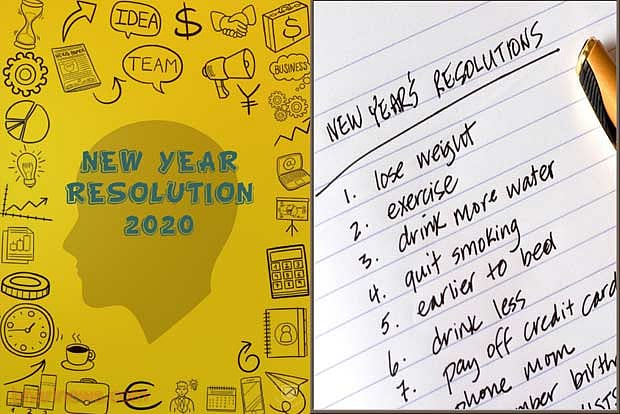 IDEA
$
$
NEWS PAPER
TEAM
BUSINESS
¥
@
NEW YEAR
RESOLUTION
2020
€
NEW YEAR'S RESOLUTIONS
1. lose weight
2. exercise
3. drink more water
4. quit smoking
5. earlier to bed
6. drink less
7. pay off credit card
phone mom